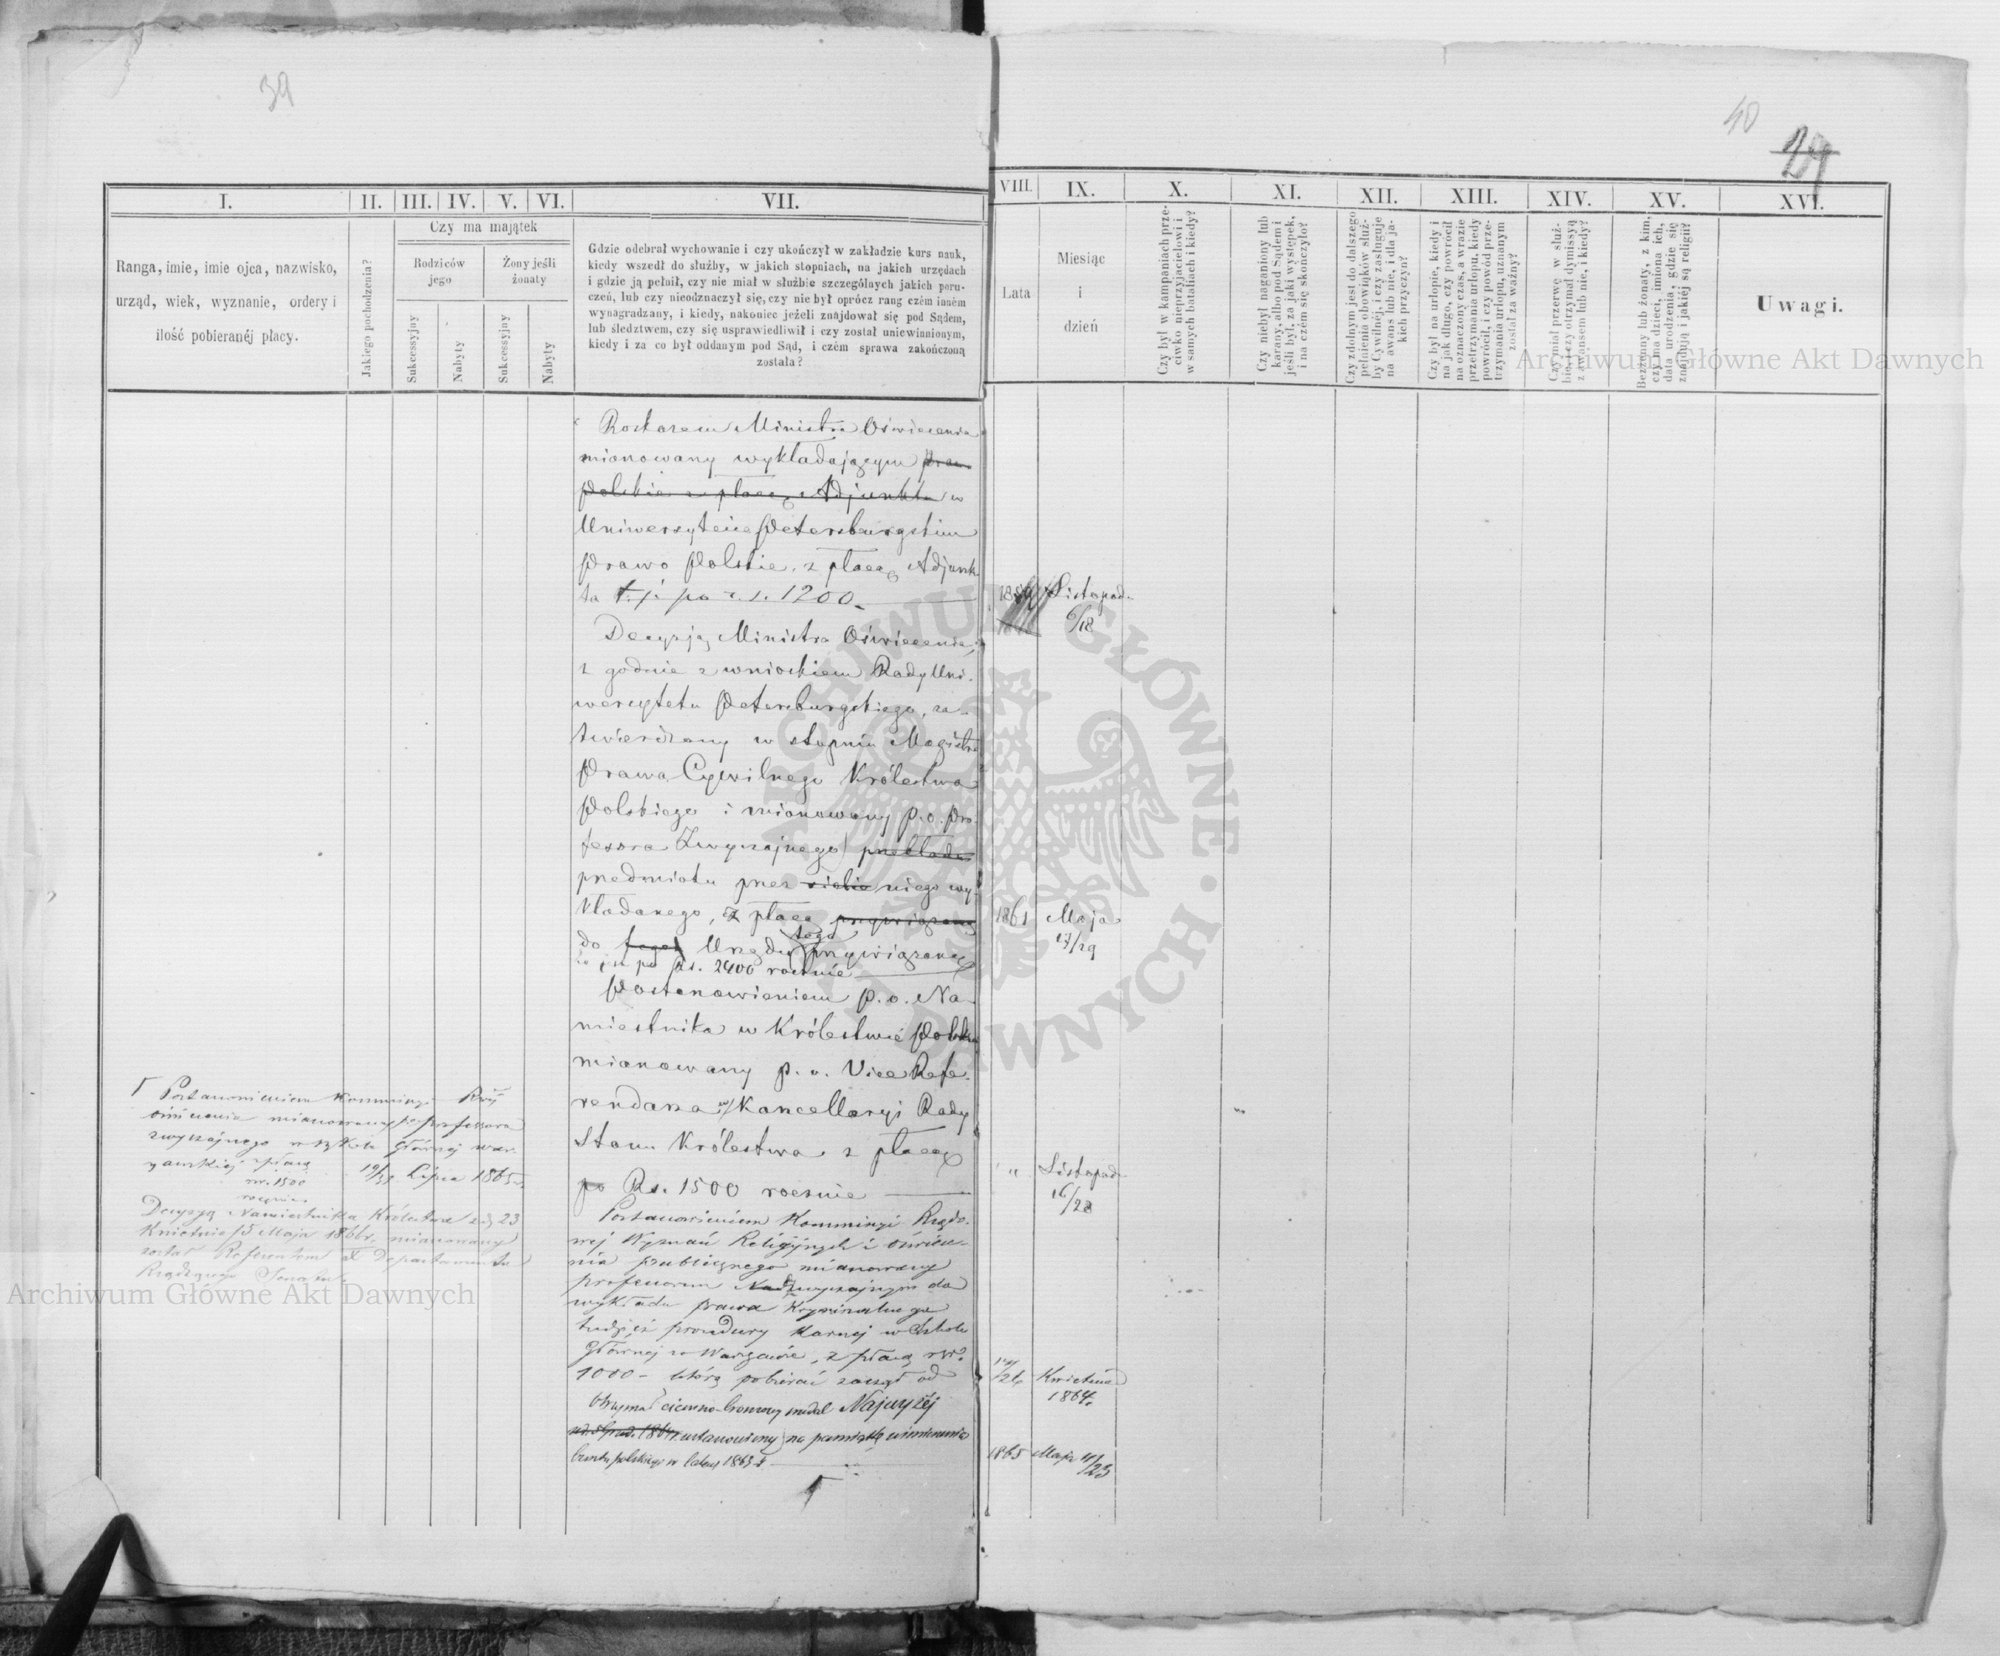 39
40
29
I.
II.
III.
IV.
V.
VI.
VII.
VIII.
IX.
X.
XI.
XII.
XIII.
XIV.
XV.
XVI.
Ranga, imie, imie ojca, nazwisko,
urząd, wiek, wyznanie, ordery i
ilość pobieranéj płacy.
Jakiego pochodzenia?
Czy ma majątek
Rodziców
jego
Żony jeśli
żonaty
Sukcessyjny
Nabyty
Sukcessyjny
Nabyty
Gdzie odebrał wychowanie i czy ukończył w zakładzie kurs nauk,
kiedy wszedł do służby, w jakich stopniach, na jakich urzędach
i gdzie ją pełnił, czy nie miał w służbie szczególnych jakich poru-
czeń, lub czy nieodznaczył się, czy nie był oprócz rang czém inném
wynagradzany, i kiedy, nakoniec jeżeli znajdował się pod Sądem,
lub śledztwem, czy się usprawiedliwił i czy został uniewinnionym,
kiedy i za co był oddanym pod Sąd, i czém sprawa zakończoną
została?
Lata
Miesiąc
i
dzień
Czy był w kampaniach prze-
ciwko nieprzyjacielowi i
w samych bataliach i kiedy?
Czy niebył naganiony lub
karany, albo pod Sądem i
jeśli był, za jaki występek,
i na czém się skończyło?
Czy zdolnym jest do dalszego
pełnienia obowiąków służ-
by Cywilnéj, i czy zasługuje
na awans lub nie, i dla ja-
kich przyczyn?
Czy był na urlopie, kiedy i
na jak długo, czy powrócił
na oznaczony czas, a wrazie
przetrzymania urlopu, kiedy
powrócił, i czy powód prze-
trzymania urlopu, uznanym
został za ważny?
Czy miał przerwę w służ-
bie, i czy otrzymał dymissyą
z awansem lub nie, i kiedy?
Bezżenny lub żonaty, z kim,
czy ma dzieci, imiona ich,
data urodzenia, gdzie się
znajdują i jakiéj są religii?
Uwagi.
Roskazem Ministra Oświecenia
mianowany wykładającym
Polskie z płacą Adjunkta w
Uniwersytecie Petersburgskim
Prawo Polskie, z płacą Adjunk
ta t. j. po r. s. 1200
Listopad
6/18
Decyzją Ministra Oświecenia,
zgodnie z wnioskiem Rady Uni-
wersytetu Petersburgskiego, za-
twierdzony w stopniu Magistra
Prawa Cywilnego Królestwa
Polskiego i mianowany p. o. Pro-
fesora Zwyczajnego
przedmiotu przez niego wy-
kładanego, z płacą przywiązaną
do tego Urzędu tego przywiązaną
to jest po Rs. 2400 rocznie
1861 Maja
17/29
Postanowieniem p. o. Na-
miestnika w Królestwie Polskim
mianowany p. o. Vice Refe-
rendarza w Kancellaryi Rady
Stanu Królestwa z płacą
po Rs. 1500 rocznie
" Listopad
16/28
Postanowieniem Kommissyi Rządo-
wej Wyznań Religijnych i oświece-
nia publicznego mianowany
profesorem Nadzwyczajnym do
wykładu prawa Kryminalnego
tudzież procedury karnej w Szkole
Głównej w Warszawie, z płacą rsr.
1000 – którą pobierać zaczął od
/24 Kwietnia
1864.
Otrzymał ciemno-bronzowy medal Najwyżéj
ustanowiony na pamiątkę uśmierzenia
buntu polskiego w latach 1863/4.
1865 Maja 11/23
Postanowieniem Kommissyi Rząd
oświecenia mianowany p. o. professora
zwyczajnego w szkole głównej war-
szawskiej z płacą 19/31 Lipca 1865 r.
rsr. 1500
rocznie
Decyzyą Namiestnika Królestwa z d. 23
Kwietnia/5 Maja 1866 r. mianowany
został Referentem IX Departamentu
Rządzącego Senatu
Archiwum Główne Akt Dawnych
Archiwum Główne Akt Dawnych
ARCHIWUM GŁÓWNE AKT DAWNYCH